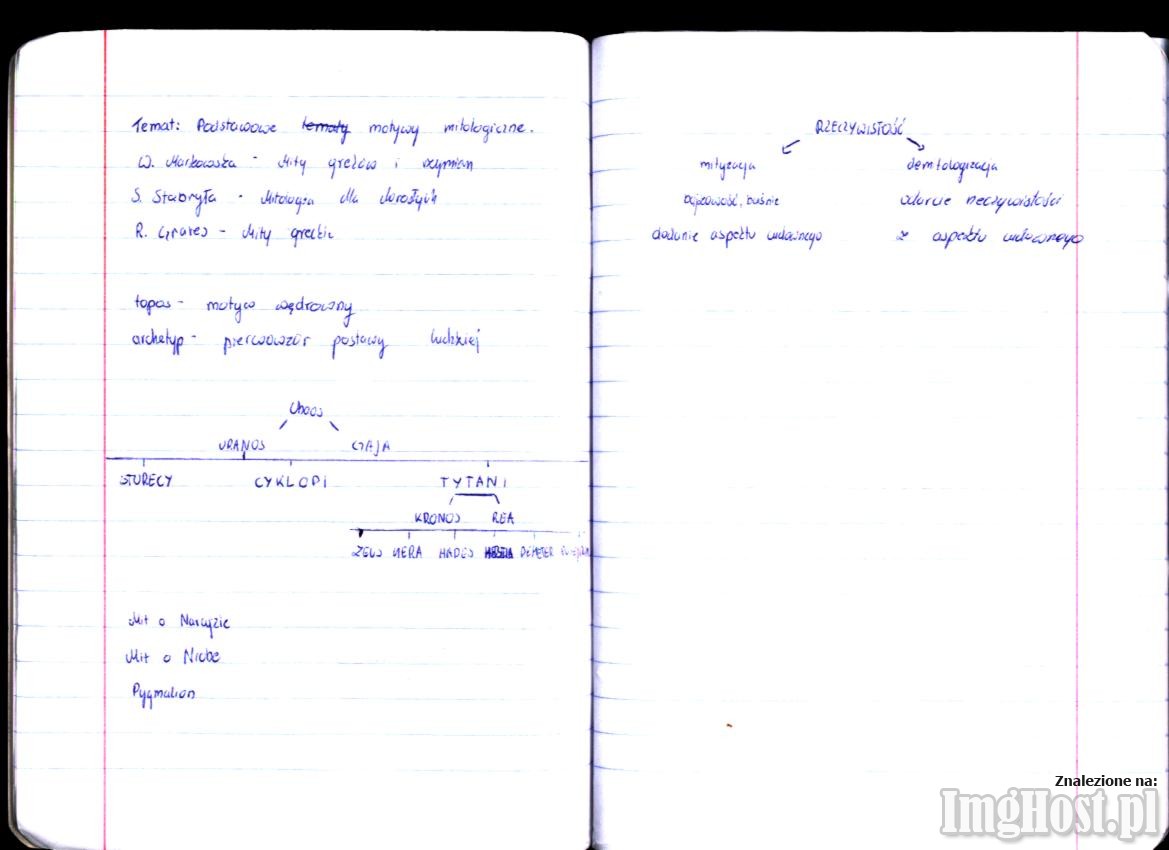 Temat: Podstawowe tematy motywy mitologiczne.
W. Markowska - Mity greków i rzymian
S. Stabryła - Mitologia dla dorosłych
R. Graves - Mity greckie
topos - motyw wędrowny
archetyp - pierwowzór postawy ludzkiej
Chaos
URANOS GAJA
STURECY CYKLOPI TYTANI
KRONOS REA
ZEUS HERA HADES HESTIA DEMETER
Mit o Narcyzie
Mit o Niobe
Pygmalion
RZECZYWISTOŚĆ
mityzacja demitologizacja
bajkowość, baśnie odarcie rzeczywistości
dodanie aspektu cudownego z aspektu cudownego
Znalezione na:
ImgHost.pl